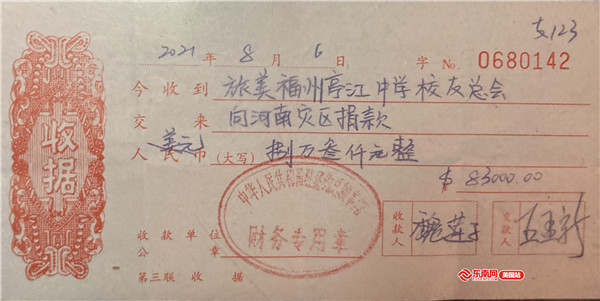 支123
2021年8月6日 字 No. 0680142
收据
今收到 旅美福州亭江中学校友总会
交来 向河南灾区捐款
美元
人民币(大写) 捌万叁仟元整
$ 83000.00
中华人民共和国驻
财务专用章
收款单位
公章
收款人
交款人
第三联 收据
东南网 美国站